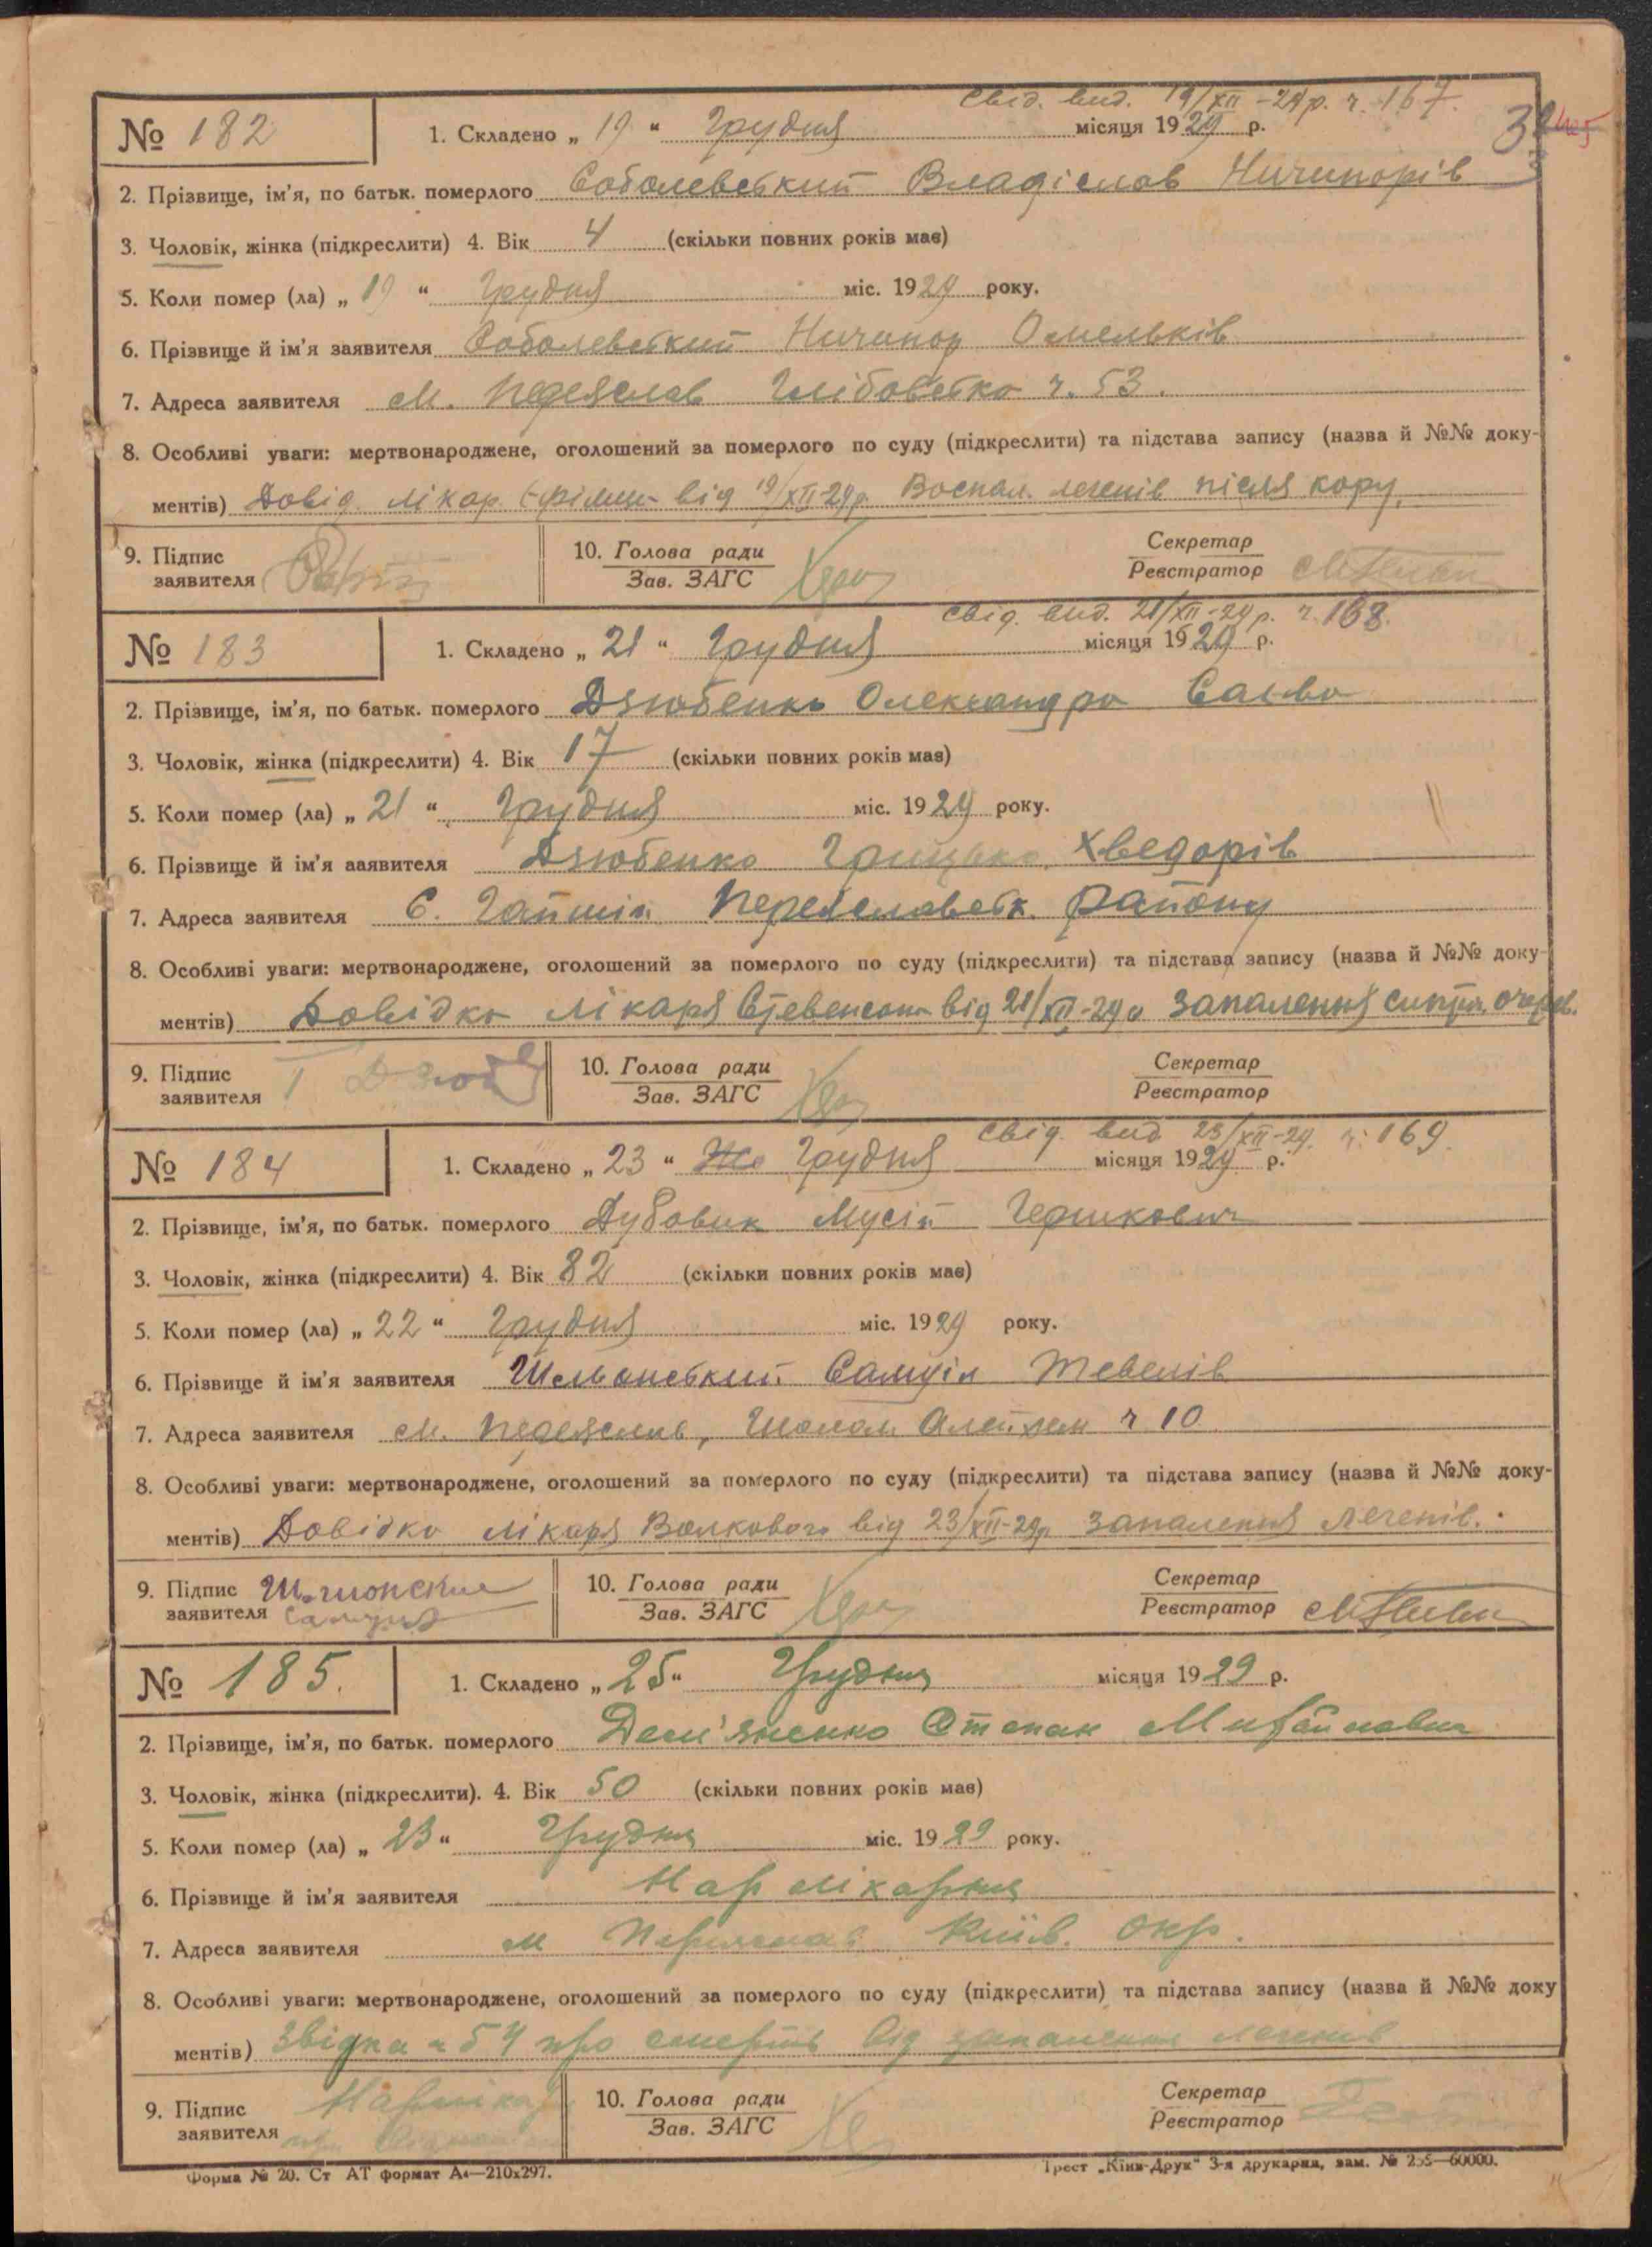 Свід. вид. 19/XII-29р. ч. 167.
№ 182 1. Складено „ 19 “ Грудня місяця 1929 р.
2. Прізвище, ім'я, по батьк. померлого Соболевський Владіслав Ничипорів
3. Чоловік, жінка (підкреслити) 4. Вік 4 (скільки повних років має)
5. Коли помер (ла) „ 19 “ Грудня міс. 1929 року.
6. Прізвище й ім'я заявителя Соболевський Ничипор Омельків
7. Адреса заявителя м. Переяслав Глібовська ч. 53.
8. Особливі уваги: мертвонароджене, оголошений за померлого по суду (підкреслити) та підстава запису (назва й №№ доку-
ментів) Довід. лікар. від 19/XII-29р. Воспал. легенів після кору.
9. Підпис заявителя 10. Голова ради Зав. ЗАГС Секретар Реєстратор
свід. вид. 21/XII-29р. ч. 168.
№ 183 1. Складено „ 21 “ Грудня місяця 1929 р.
2. Прізвище, ім'я, по батьк. померлого Дзюбенко Олександра
3. Чоловік, жінка (підкреслити) 4. Вік 17 (скільки повних років має)
5. Коли помер (ла) „ 21 “ Грудня міс. 1929 року.
6. Прізвище й ім'я ааявителя Дзюбенко Грицько Хведорів
7. Адреса заявителя С. Гайшін Переяславськ. Району
8. Особливі уваги: мертвонароджене, оголошений за померлого по суду (підкреслити) та підстава запису (назва й №№ доку-
ментів) Довідка лікаря від 21/XII-29р Запалення
9. Підпис заявителя Г Дзюб 10. Голова ради Зав. ЗАГС Секретар Реєстратор
свід. вид 23/XII-29. ч. 169.
№ 184 1. Складено „ 23 “ Грудня місяця 1929 р.
2. Прізвище, ім'я, по батьк. померлого Дубовик Мусій Гершкович
3. Чоловік, жінка (підкреслити) 4. Вік 82 (скільки повних років має)
5. Коли помер (ла) „ 22 “ Грудня міс. 1929 року.
6. Прізвище й ім'я заявителя Самуіл Тевелів
7. Адреса заявителя м. Переяслав, Шолом Алейхем ч 10
8. Особливі уваги: мертвонароджене, оголошений за померлого по суду (підкреслити) та підстава запису (назва й №№ доку-
ментів) Довідка лікаря Волкового від 23/XII-29р Запалення легенів.
9. Підпис заявителя 10. Голова ради Зав. ЗАГС Секретар Реєстратор
№ 185. 1. Складено „ 25 “ Грудня місяця 1929 р.
2. Прізвище, ім'я, по батьк. померлого Дем'яненко Степан Михайлович
3. Чоловік, жінка (підкреслити). 4. Вік 50 (скільки повних років має)
5. Коли помер (ла) „ 23 “ Грудня міс. 1929 року.
6. Прізвище й ім'я заявителя Нар лікарня
7. Адреса заявителя м Переяслав Київ. Окр.
8. Особливі уваги: мертвонароджене, оголошений за померлого по суду (підкреслити) та підстава запису (назва й №№ доку
ментів) Звідка ч 54 про смерть від запалення легенів
9. Підпис заявителя 10. Голова ради Зав. ЗАГС Секретар Реєстратор
Форма № 20. Ст АТ формат А4—210х297. Трест „Київ-Друк“ 3-я друкарня, зам. № 255—60000.